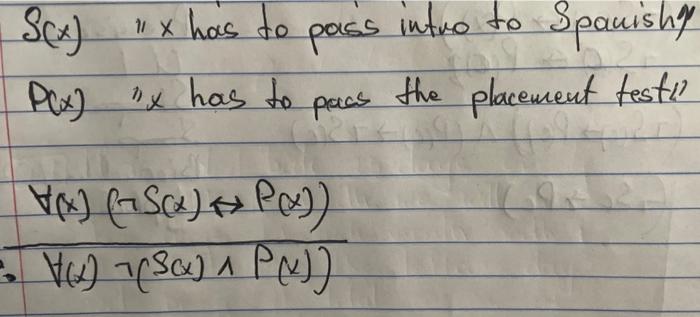 S(x) "x has to pass intro to Spanish"
P(x) "x has to pass the placement test"
∀(x) (¬S(x) ↔ P(x))
∴ ∀(x) ¬(S(x) ∧ P(x))